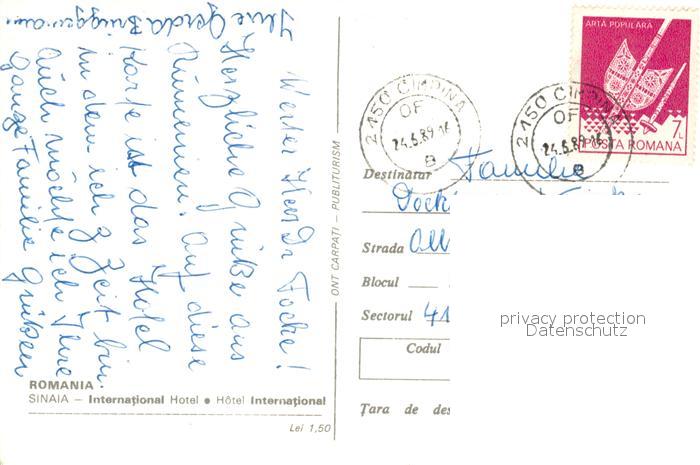 Werter Herr Dr. Focke!
Herzliche Grüße aus
Rumänien. Auf diese
Karte ist das Hotel
in dem ich z Zeit bin.
Auch möchte ich Ihre
ganze Familie Grüßen
Ihre Gerda
ROMANIA
SINAIA – International Hotel • Hôtel International
Lei 1,50
ONT CARPAȚI — PUBLITURISM
2150 CÎMPINA
OF
24.6.89.16
2150 CÎMPINA
OF
24.6.89.16
ARTĂ POPULARĂ
7L
POȘTA ROMANA
Destinatar Familie
Strada
Blocul
Sectorul 41
Codul
Țara de des
privacy protection
Datenschutz